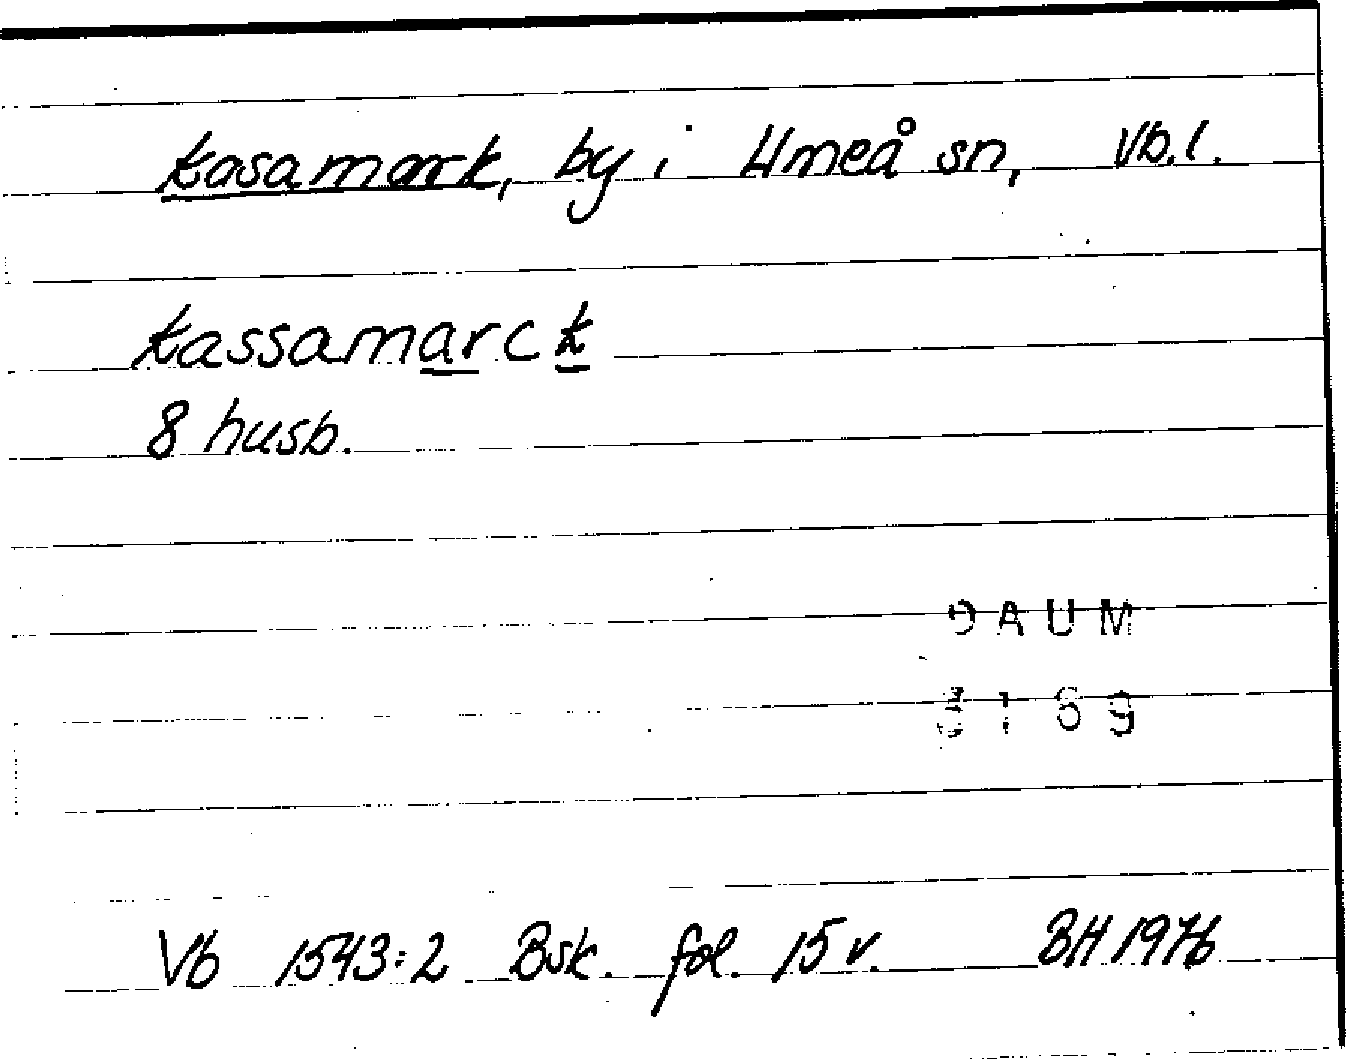 Kasamark, by i Umeå sn, Vb.l.
Kassamarck
8 husb.
DAUM
Vb 1543:2 Bsk. fol. 15 v. BH 1976